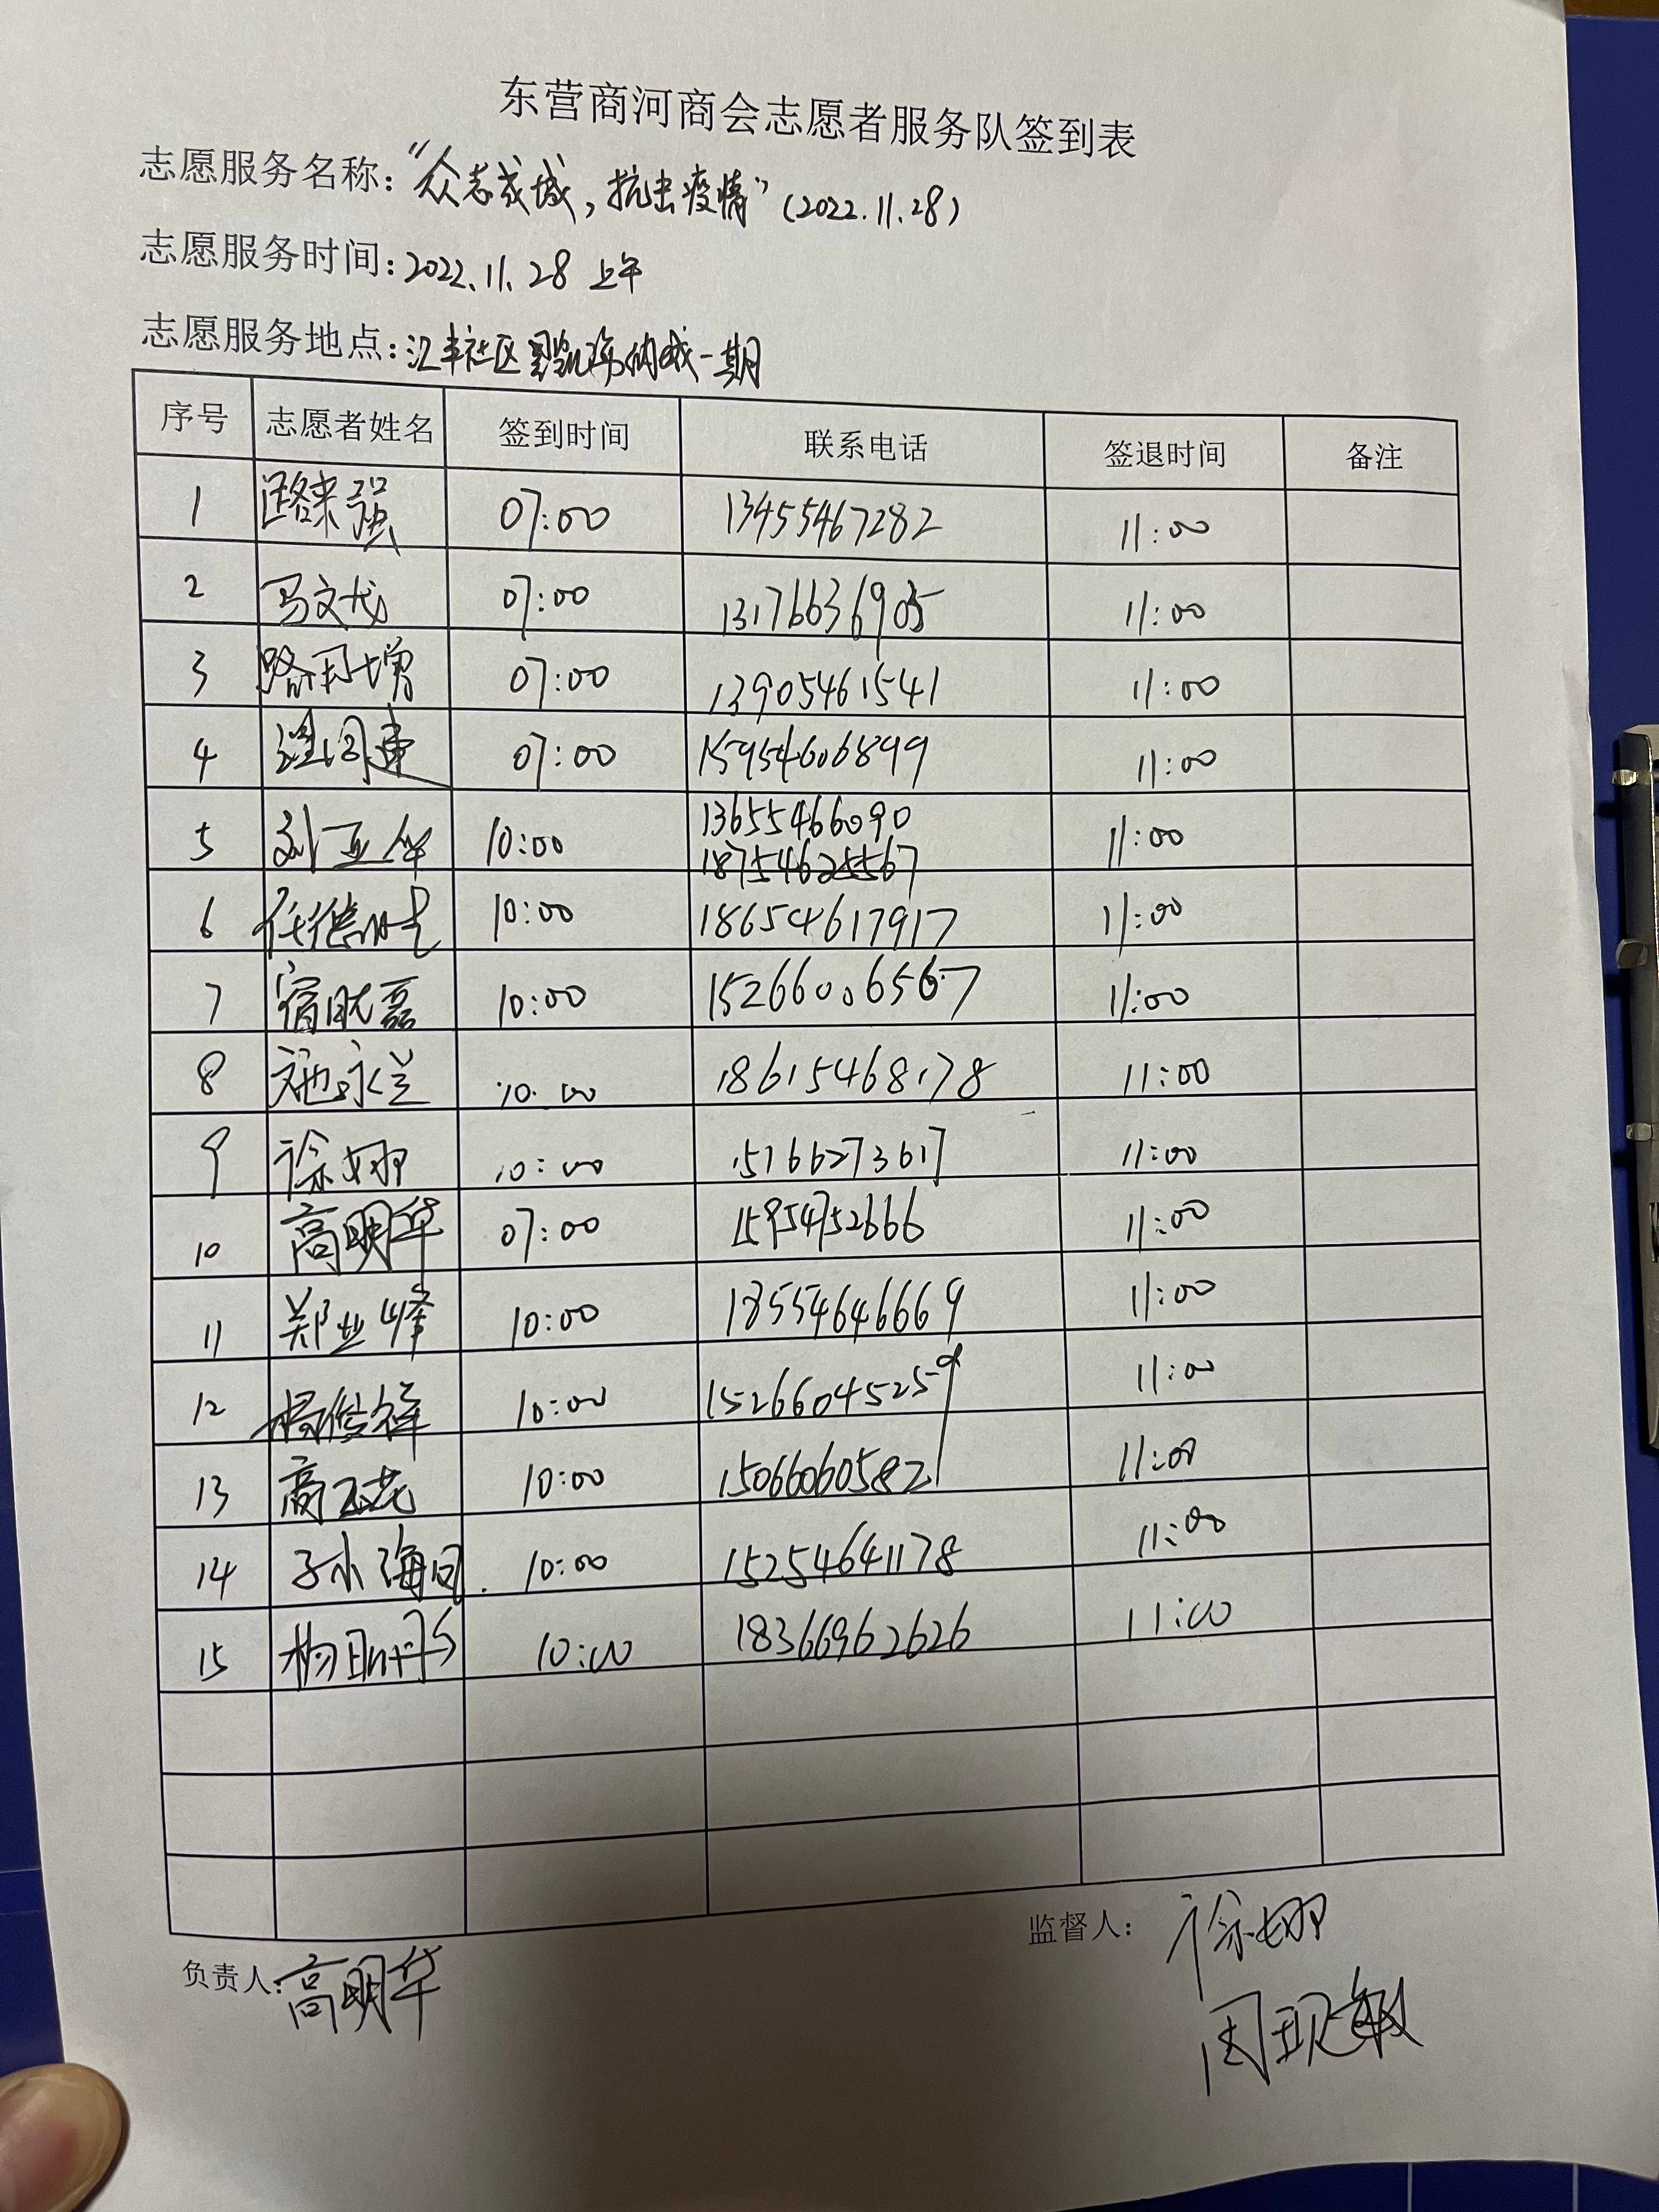 东营商河商会志愿者服务队签到表
志愿服务名称:“众志成城,抗击疫情”(2022.11.28)
志愿服务时间:2022.11.28 上午
志愿服务地点:汇丰社区 一期
序号 志愿者姓名 签到时间 联系电话 签退时间 备注
1 路来强 07:00 13455467282 11:00
2 马文龙 07:00 13176636905 11:00
3 路丹增 07:00 13905461541 11:00
4 07:00 15954606899 11:00
5 刘亚华 10:00 13655466090 11:00
18754625567
6 10:00 18654617917 11:00
7 10:00 15266006567 11:00
8 10:00 18615468178 11:00
9 徐娜 10:00 15166273617 11:00
10 高明华 07:00 15954752666 11:00
11 郑业峰 10:00 18554646669 11:00
12 杨俊祥 10:00 15266045259 11:00
13 高玉花 10:00 15066060582 11:00
14 孙海国 10:00 15254641178 11:00
15 10:00 18366962626 11:00
负责人:高明华
监督人:徐娜
周现敏